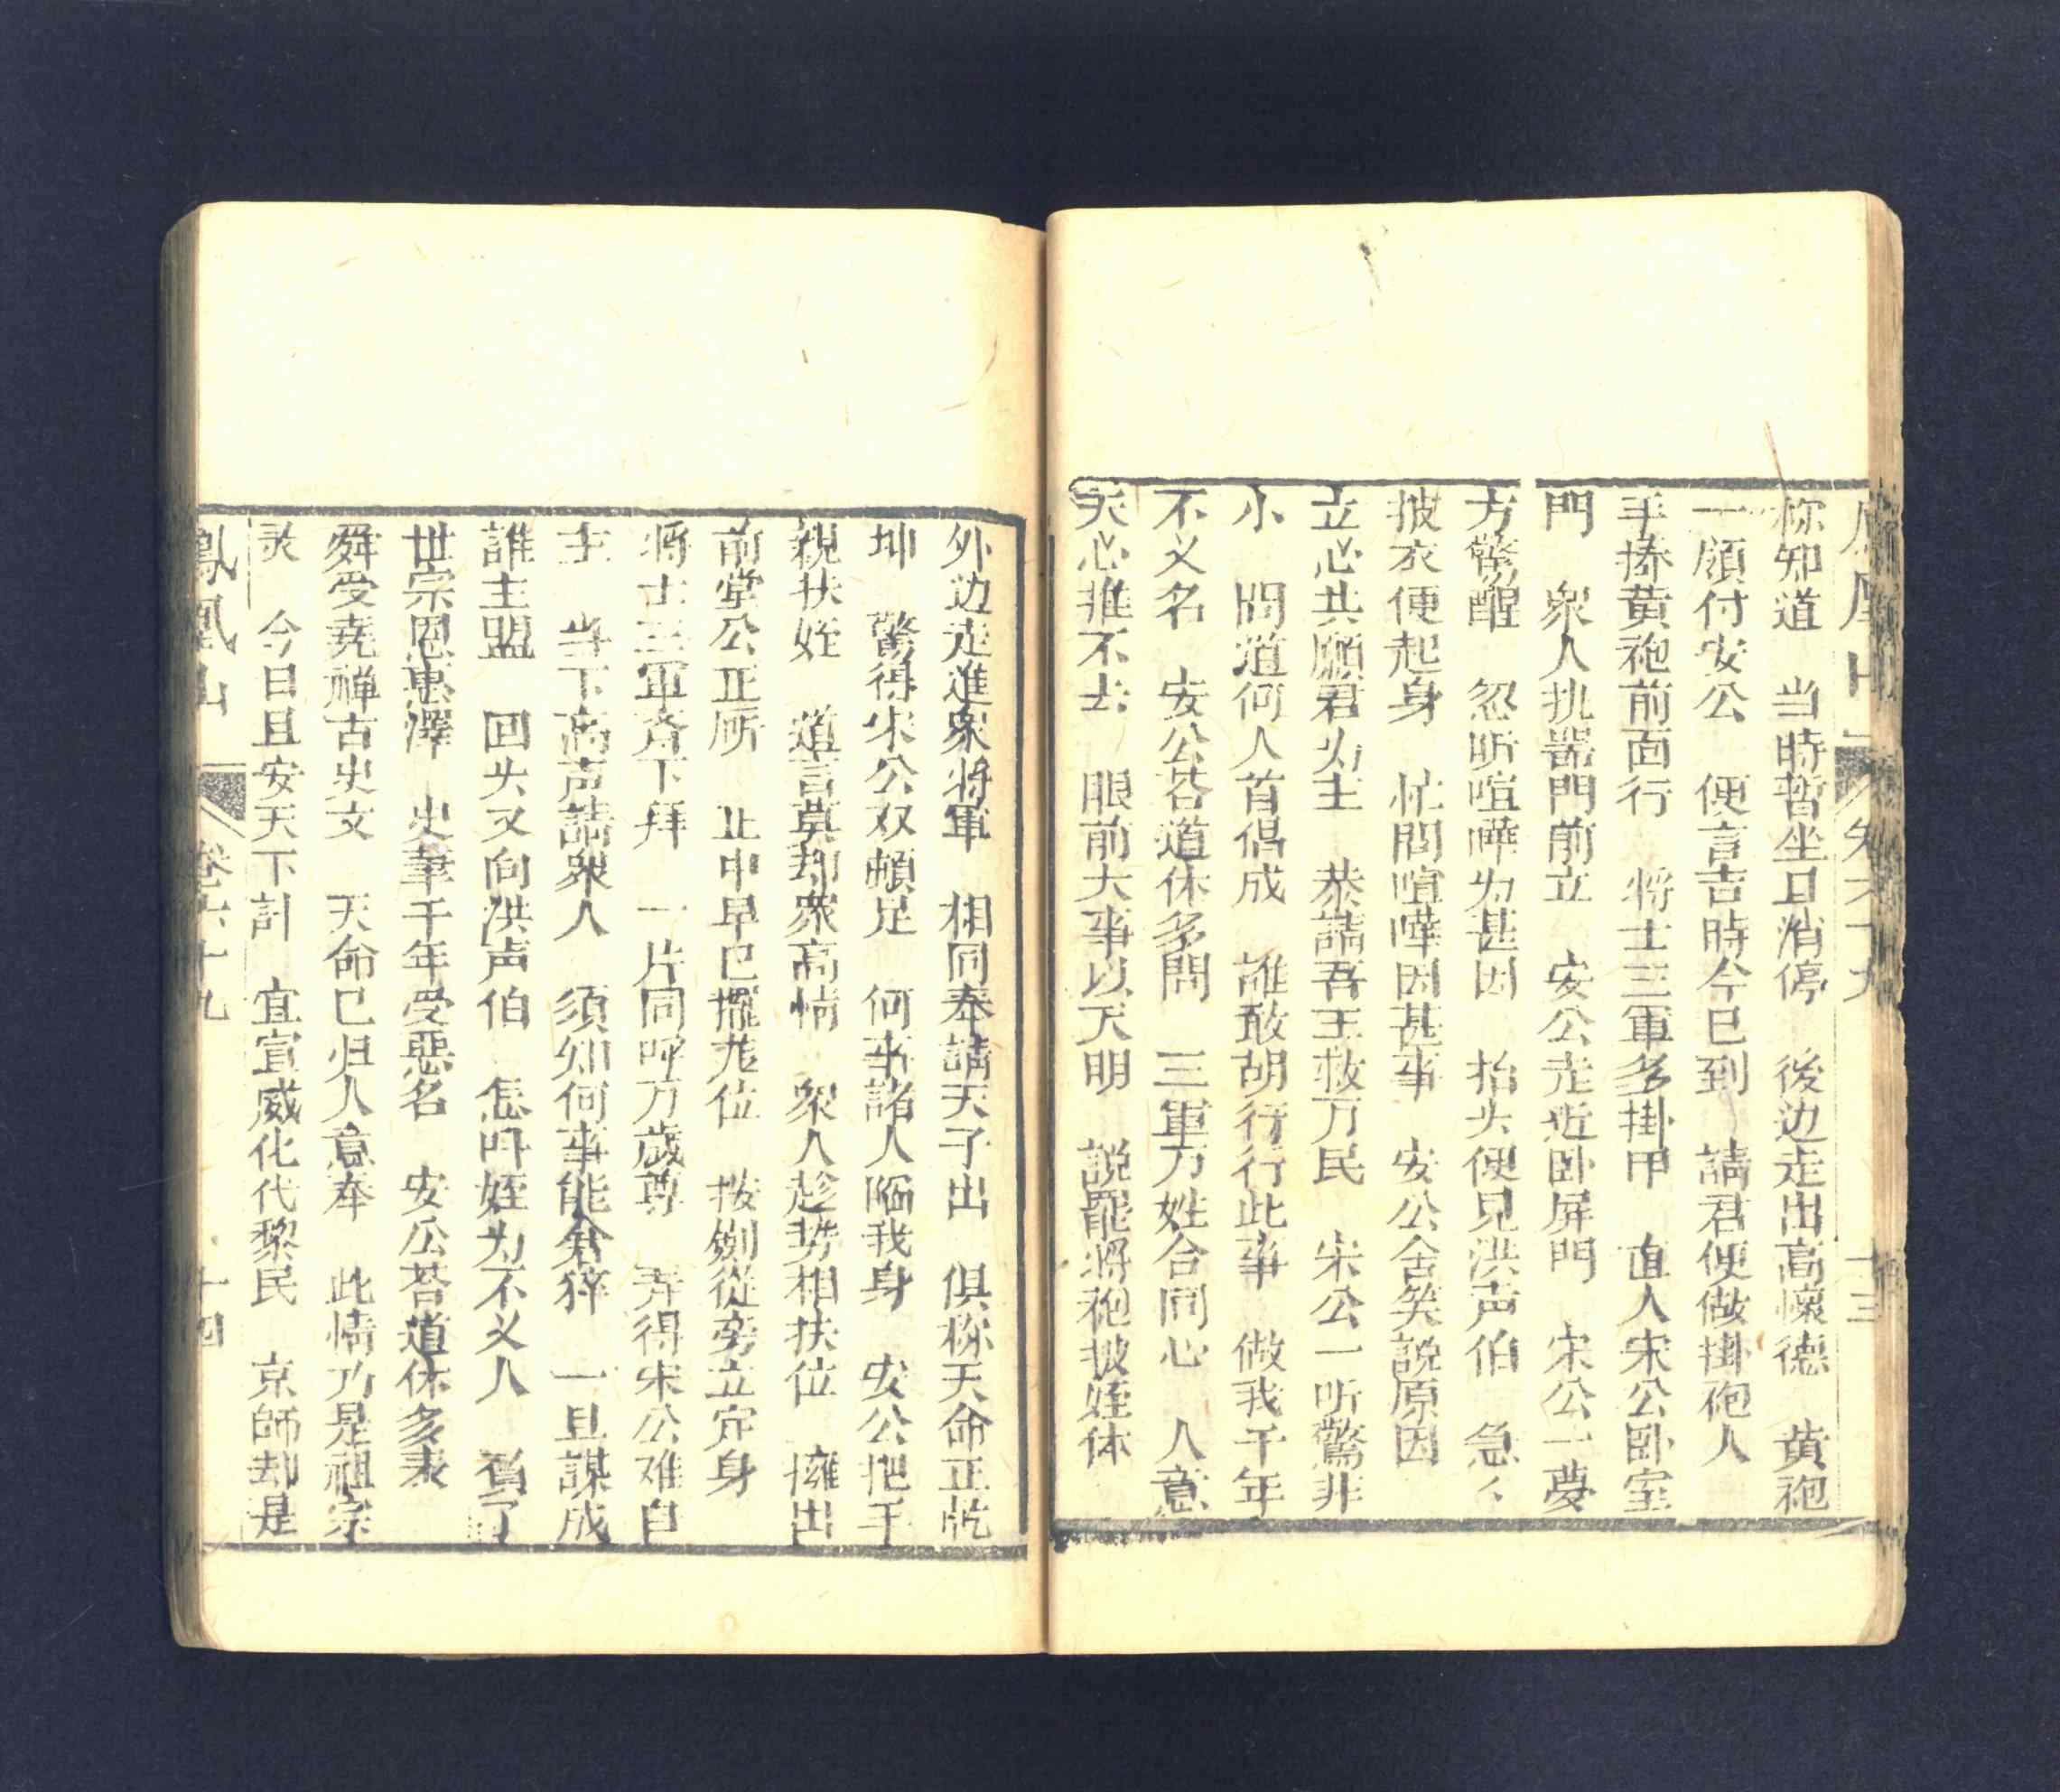 鳳凰山 卷六十九 十三
称知道　当時暫坐且消停　後边走出高懷德　黄袍
一領付安公　便言吉時今已到　請君便做掛袍人
手捧黄袍前面行　將士三軍多掛甲　直入宋公卧室
門　衆人执器門前立　安公走近卧屏門　宋公一夢
方驚醒　忽听喧嘩为甚因　抬头便見洪声伯　急〻
披衣便起身　忙問喧嘩因甚事　安公含笑説原因
立心共願君为主　恭請吾王救万民　宋公一听驚非
小　問道何人首倡成　誰敢胡行行此事　做我千年
不义名　安公答道休多問　三軍万姓合同心　人意
天心推不去　眼前大事以天明　説罷將袍披姪体
外边走進衆將軍　相同奉請天子出　俱称天命正乾
坤　驚得宋公双頓足　何事諸人陷我身　安公把手
親扶姪　道言莫却衆高情　衆人趁势相扶位　擁出
前堂公正所　正中早已擺龙位　按劍從旁立定身
將士三軍齐下拜　一片同呼万歲尊　弄得宋公难自
主　当下高声請衆人　须知何事能倉猝　一旦謀成
誰主盟　回头又向洪声伯　怎叫姪为不义人　負了
世宗恩惠澤　史筆千年受惡名　安公荅道休多表
舜受尭禅古史文　天命已归人意奉　此情乃是祖宗
灵　今日且安天下計　宜宣威化代黎民　京師却是
鳳凰山 卷六十九 十四